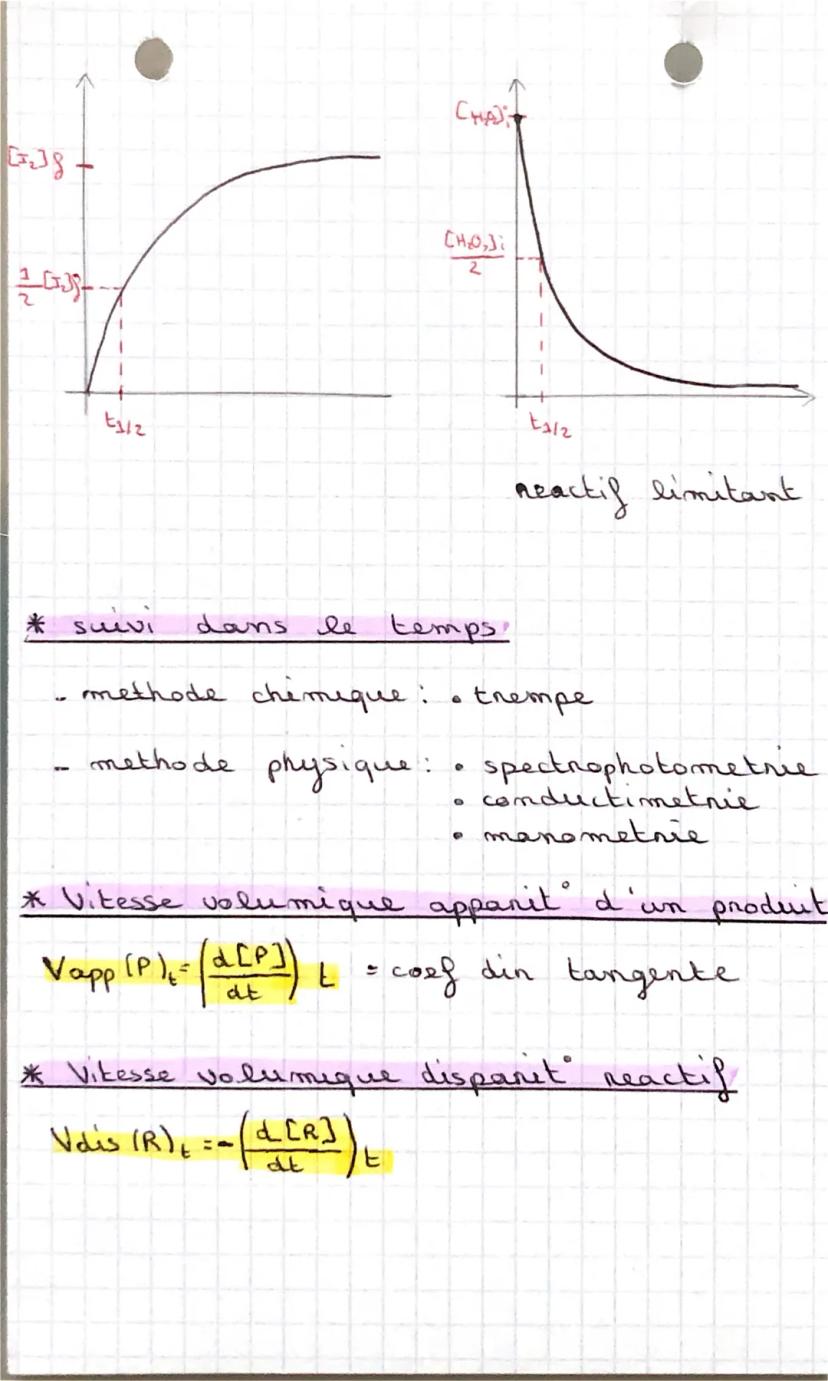 [I₂]f
1/2 [I₂]f
t1/2
[HA]i
[H₂O₂]i/2
t1/2
reactif limitant
* suivi dans le temps
- methode chimique : • trempe
- methode physique : • spectrophotometrie
• conductimetrie
• manometrie
* Vitesse volumique apparit° d'un produit
Vapp (P)t = (d[P]/dt) t = coef dir tangente
* Vitesse volumique disparit° reactif
Vdis (R)t = -(d[R]/dt) t